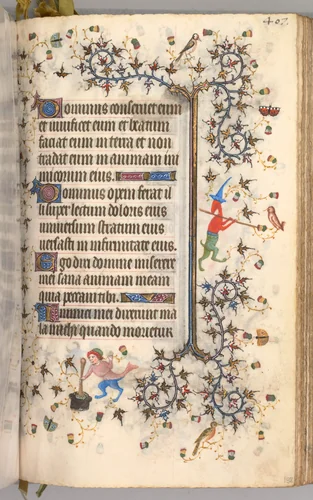 402
Dominus conseruet eum
et uiuificet eum et beatum
faciat eum in terra et non
tradat eum in animam ini
micorum eius.
Dominus opem ferat il
li super lectum doloris eius
uniuersum stratum eius
uersasti in infirmitate eius.
Ego dixi domine miserere
mei sana animam meam
quia peccaui tibi.
Inimici mei dixerunt ma
la michi quando morietur